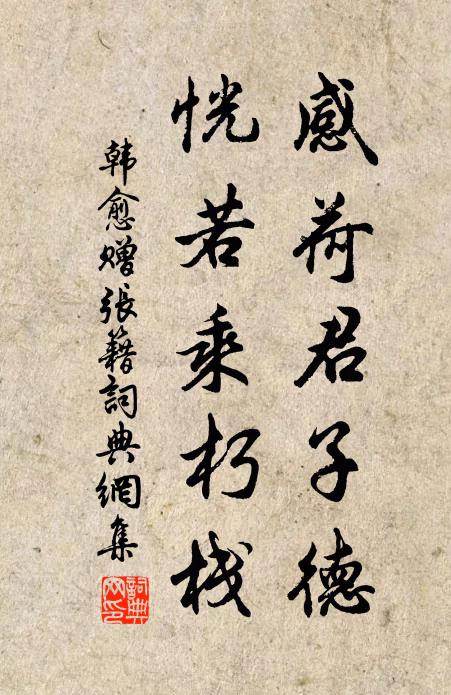 感荷君子德
恍若乘朽栈
韩愈赠張籍詞典網集
詞典网印